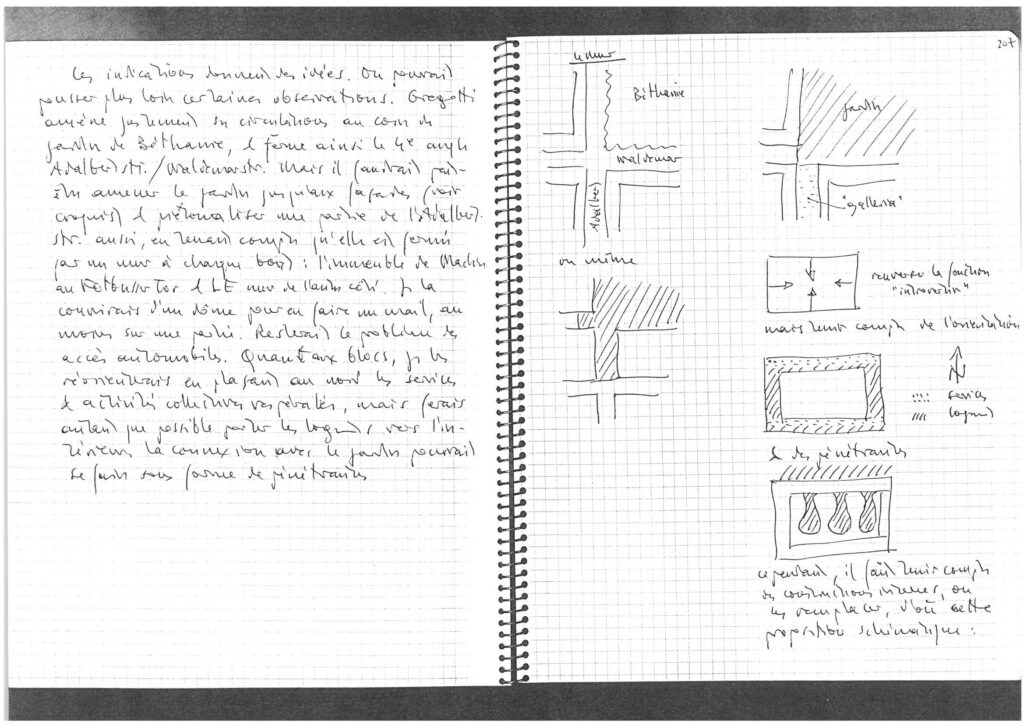 Ces indications donnent des idées. On pourrait
pousser plus loin certaines observations. Gregotti
amène justement ses circulations au coin du
jardin de Béthanie, et ferme ainsi le 4e angle
Adalbertstr./Waldemarstr. Mais il faudrait peut-
être amener le jardin jusqu'aux façades (voir
croquis) et piétonnaliser une partie de l'Adalbert-
str. aussi, en tenant compte qu'elle est fermée
par un mur à chaque bout : l'immeuble de Machin
au Kottbussertor et LE mur de l'autre côté. Je la
couvrirais d'un dôme pour en faire un mail, au
moins sur une partie. Resterait le problème des
accès automobiles. Quant aux blocs, je les
réorienterais en plaçant au nord les services
et activités collectives, mais ferais
autant que possible porter les logements vers l'in-
térieur. La connexion avec le jardin pourrait
se faire sous forme de pénétrantes
207
le mur
Béthanie
Waldemar
Adalbert
jardin
"galleria"
ou même
renverser la position
"introvertie"
mais tenir compte de l'orientation
N
services
logements
et des pénétrantes
cependant, il faut tenir compte
des constructions internes, ou
les remplacer, d'où cette
proposition schématique :